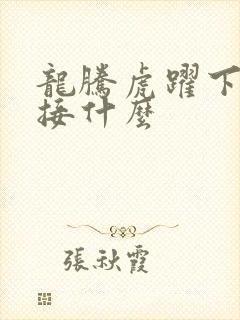 龍騰虎躍下
接什麼
張秋霞